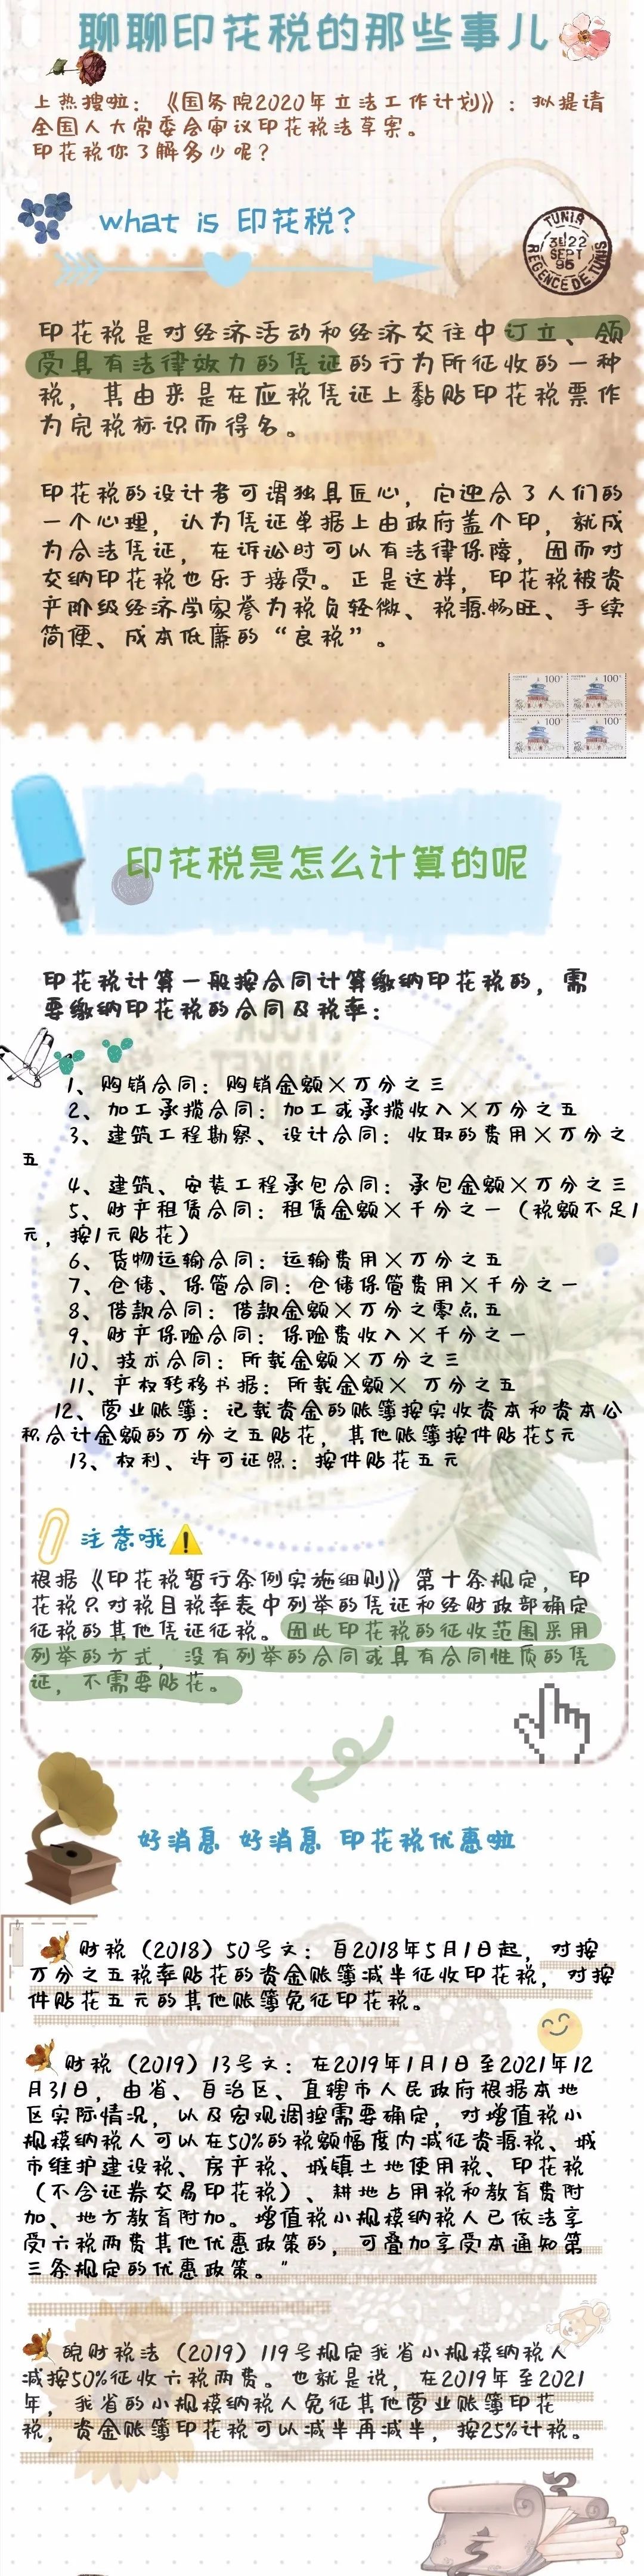 聊聊印花税的那些事儿
上热搜啦：《国务院2020年立法工作计划》：拟提请
全国人大常委会审议印花税法草案。
印花税你了解多少呢？
what is 印花税？
TUNIS
31 22
SEPT
95
REGENCE DE TUNIS
印花税是对经济活动和经济交往中订立、领
受具有法律效力的凭证的行为所征收的一种
税，其由来是在应税凭证上黏贴印花税票作
为完税标识而得名。
印花税的设计者可谓独具匠心，它迎合了人们的
一个心理，认为凭证单据上由政府盖个印，就成
为合法凭证，在诉讼时可以有法律保障，因而对
交纳印花税也乐于接受。正是这样，印花税被资
产阶级经济学家誉为税负轻微、税源畅旺、手续
简便、成本低廉的“良税”。
100
100
100
100
印花税是怎么计算的呢
印花税计算一般按合同计算缴纳印花税的，需
要缴纳印花税的合同及税率：
1、购销合同：购销金额×万分之三
2、加工承揽合同：加工或承揽收入×万分之五
3、建筑工程勘察、设计合同：收取的费用×万分之
五
4、建筑、安装工程承包合同：承包金额×万分之三
5、财产租赁合同：租赁金额×千分之一（税额不足1
元，按1元贴花）
6、货物运输合同：运输费用×万分之五
7、仓储、保管合同：仓储保管费用×千分之一
8、借款合同：借款金额×万分之零点五
9、财产保险合同：保险费收入×千分之一
10、技术合同：所载金额×万分之三
11、产权转移书据：所载金额× 万分之五
12、营业账簿：记载资金的账簿按实收资本和资本公
积合计金额的万分之五贴花，其他账簿按件贴花5元
13、权利、许可证照：按件贴花五元
注意哦
根据《印花税暂行条例实施细则》第十条规定，印
花税只对税目税率表中列举的凭证和经财政部确定
征税的其他凭证征税。因此印花税的征收范围采用
列举的方式，没有列举的合同或具有合同性质的凭
证，不需要贴花。
好消息 好消息 印花税优惠啦
财税（2018）50号文：自2018年5月1日起，对按
万分之五税率贴花的资金账簿减半征收印花税，对按
件贴花五元的其他账簿免征印花税。
财税（2019）13号文：在2019年1月1日至2021年12
月31日，由省、自治区、直辖市人民政府根据本地
区实际情况，以及宏观调控需要确定，对增值税小
规模纳税人可以在50%的税额幅度内减征资源税、城
市维护建设税、房产税、城镇土地使用税、印花税
（不含证券交易印花税）、耕地占用税和教育费附
加、地方教育附加。增值税小规模纳税人已依法享
受六税两费其他优惠政策的，可叠加享受本通知第
三条规定的优惠政策。”
皖财税法（2019）119号规定我省小规模纳税人
减按50%征收六税两费。也就是说，在2019年至2021
年，我省的小规模纳税人免征其他营业账簿印花
税，资金账簿印花税可以减半再减半，按25%计税。